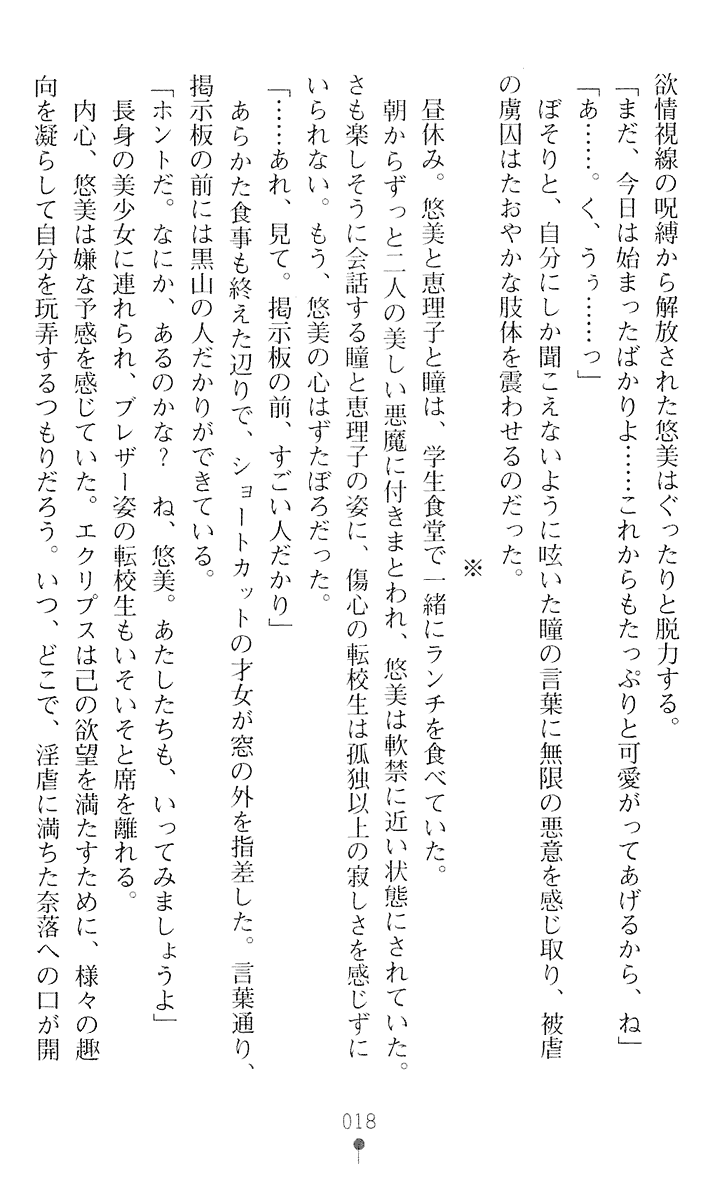 欲情視線の呪縛から解放された悠美はぐったりと脱力する。
「まだ、今日は始まったばかりよ……これからもたっぷりと可愛がってあげるから、ね」
「あ……。く、うぅ……っ」
ぼそりと、自分にしか聞こえないように呟いた瞳の言葉に無限の悪意を感じ取り、被虐
の虜囚はたおやかな肢体を震わせるのだった。
※
昼休み。悠美と恵理子と瞳は、学生食堂で一緒にランチを食べていた。
朝からずっと二人の美しい悪魔に付きまとわれ、悠美は軟禁に近い状態にされていた。
さも楽しそうに会話する瞳と恵理子の姿に、傷心の転校生は孤独以上の寂しさを感じずに
いられない。もう、悠美の心はずたぼろだった。
「……あれ、見て。掲示板の前、すごい人だかり」
あらかた食事も終えた辺りで、ショートカットの才女が窓の外を指差した。言葉通り、
掲示板の前には黒山の人だかりができている。
「ホントだ。なにか、あるのかな？　ね、悠美。あたしたちも、いってみましょうよ」
長身の美少女に連れられ、ブレザー姿の転校生もいそいそと席を離れる。
内心、悠美は嫌な予感を感じていた。エクリプスは己の欲望を満たすために、様々の趣
向を凝らして自分を玩弄するつもりだろう。いつ、どこで、淫虐に満ちた奈落への口が開
018